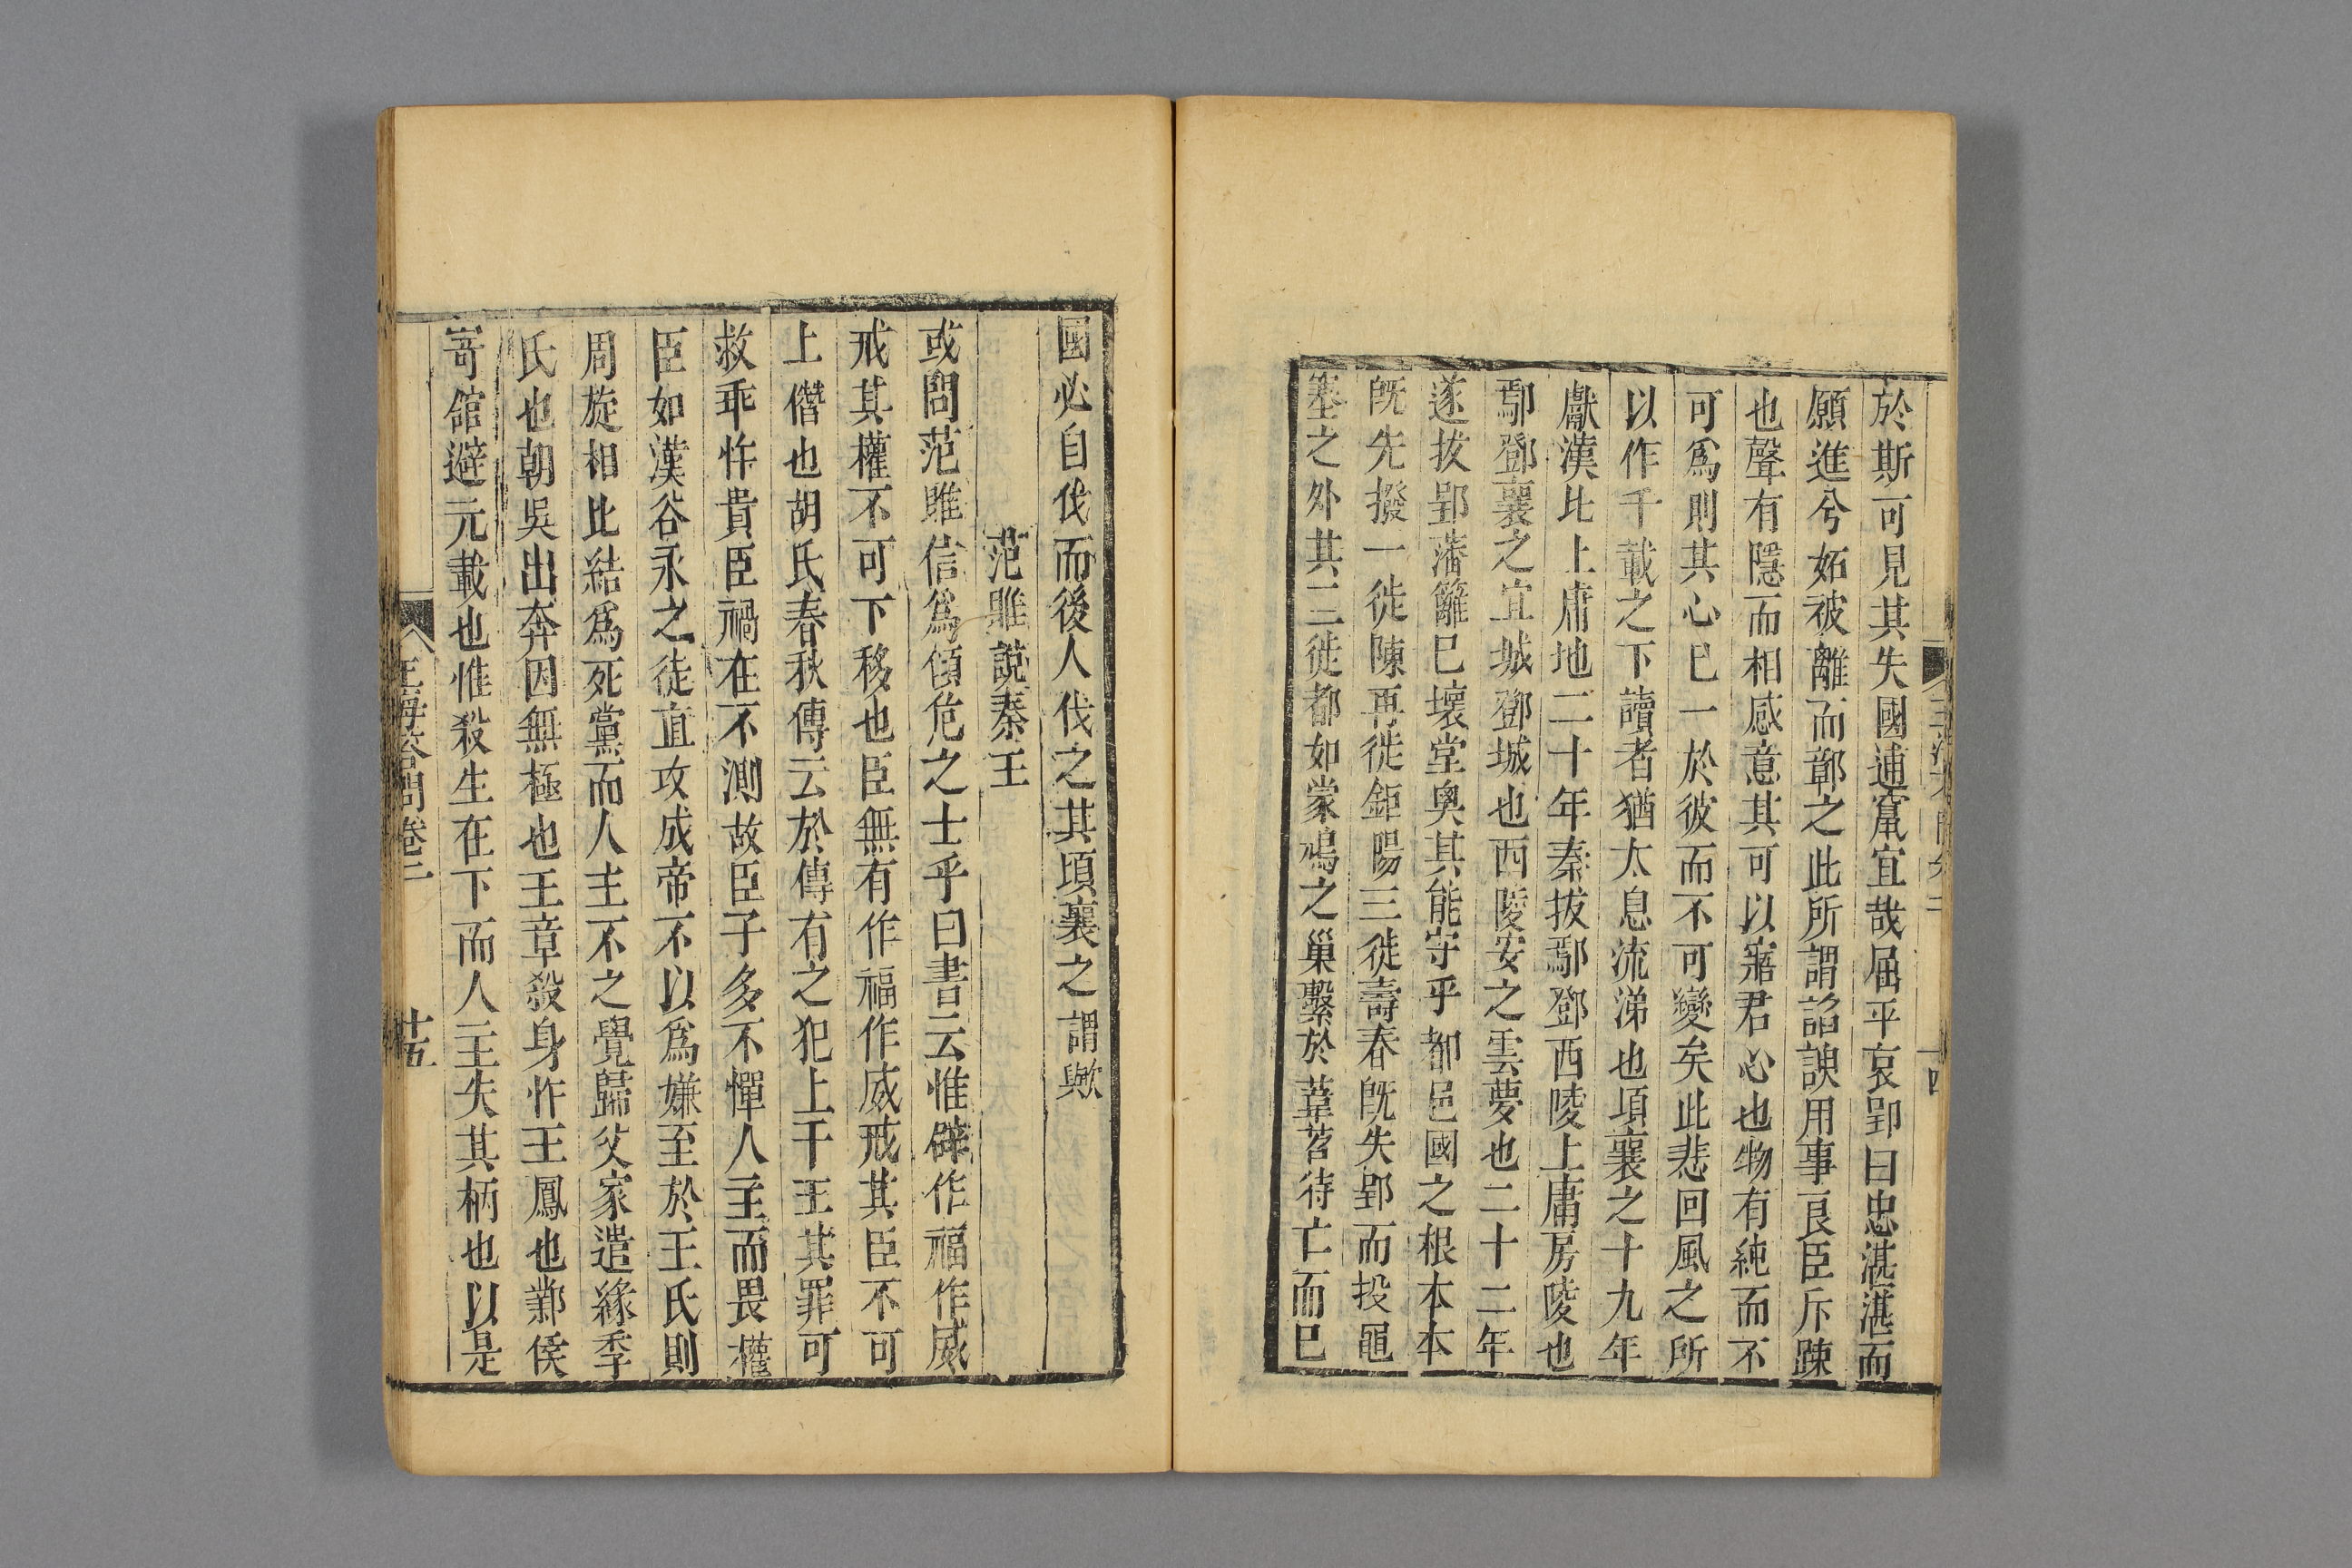 於斯可見其失國逋竄宜哉屈平哀郢曰忠湛湛而
願進兮妬被離而鄣之此所謂諂諛用事良臣斥踈
也聲有隱而相感意其可以寤君心也物有純而不
可爲則其心已一於彼而不可變矣此悲回風之所
以作千載之下讀者猶太息流涕也項襄之十九年
獻漢北上庸地二十年秦拔鄢鄧西陵上庸房陵也
鄢鄧襄之宜城鄧城也西陵安之雲夢也二十二年
遂拔郢藩籬已壞堂奥其能守乎都邑國之根本本
旣先撥一徙陳再徙鉅陽三徙壽春旣失郢而投黽
塞之外其三徙都如蒙鳩之巢繫於葦苕待亡而已
國必自伐而後人伐之其項襄之謂歟
范雎說秦王
或問范雎信爲傾危之士乎曰書云惟辟作福作威
戒其權不可下移也臣無有作福作威戒其臣不可
上僭也胡氏春秋傳云於傳有之犯上干王其罪可
救乖忤貴臣禍在不測故臣子多不憚人主而畏權
臣如漢谷永之徒直攻成帝不以爲嫌至於王氏則
周旋相比結爲死黨而人主不之覺歸父家遣緣季
氏也朝吳出奔因無極也王章殺身忤王鳳也鄴侯
寄館避元載也惟殺生在下而人主失其柄也以是
玉海答問卷二
十五